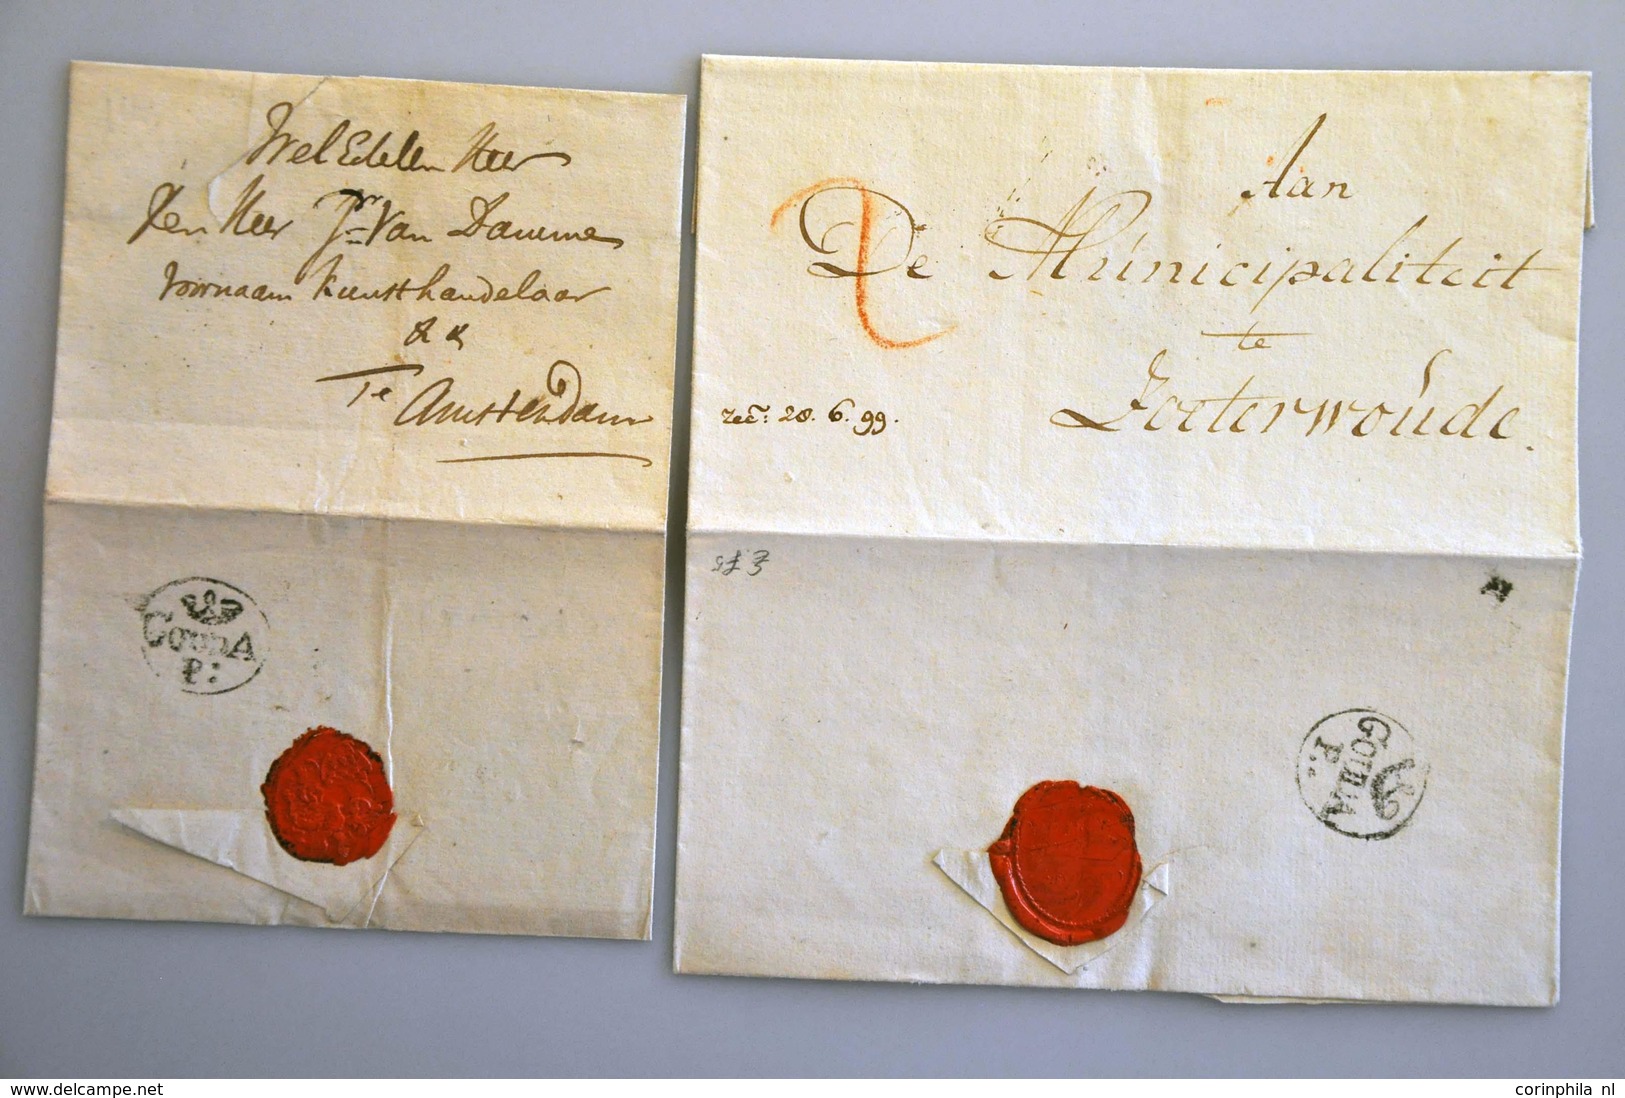 Wel Edelen Heer
Den Heer Pr Van Damme
voornaam kunsthandelaar
& &
Te Amsterdam
GOUDA
P:
Aan
De Municipaliteit
te
Zoeterwoude.
recc: 20. 6. 99.
GOUDA
P:
delcampe.net
corinphila nl